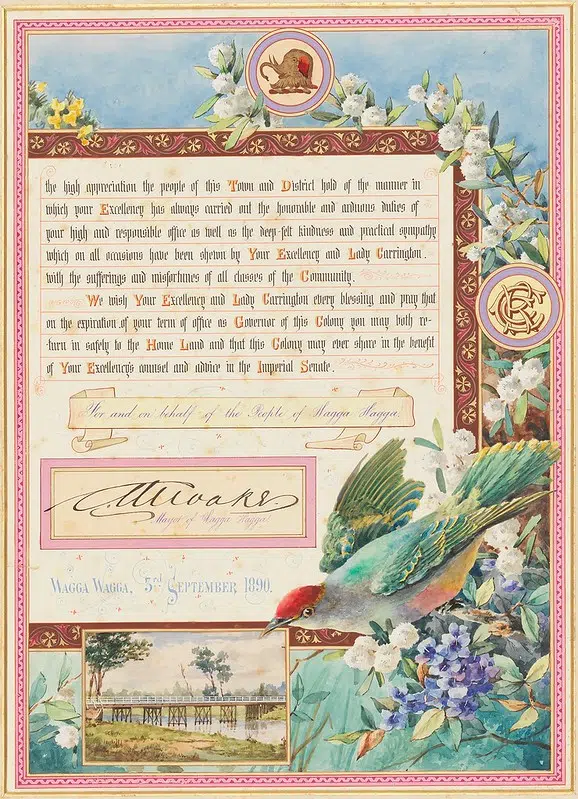 the high appreciation the people of this Town and District hold of the manner in
which your Excellency has always carried out the honorable and arduous duties of
your high and responsible office as well as the deep-felt kindness and practical sympathy
which on all occasions have been shewn by Your Excellency and Lady Carrington,
with the sufferings and misfortunes of all classes of the Community.
We wish Your Excellency and Lady Carrington every blessing and pray that
on the expiration of your term of office as Governor of this Colony you may both re-
turn in safety to the Home Land and that this Colony may ever share in the benefit
of Your Excellency's counsel and advice in the Imperial Senate.
For and on behalf of the People of Wagga Wagga.
Mayor of Wagga Wagga
Wagga Wagga, 3rd September 1890.